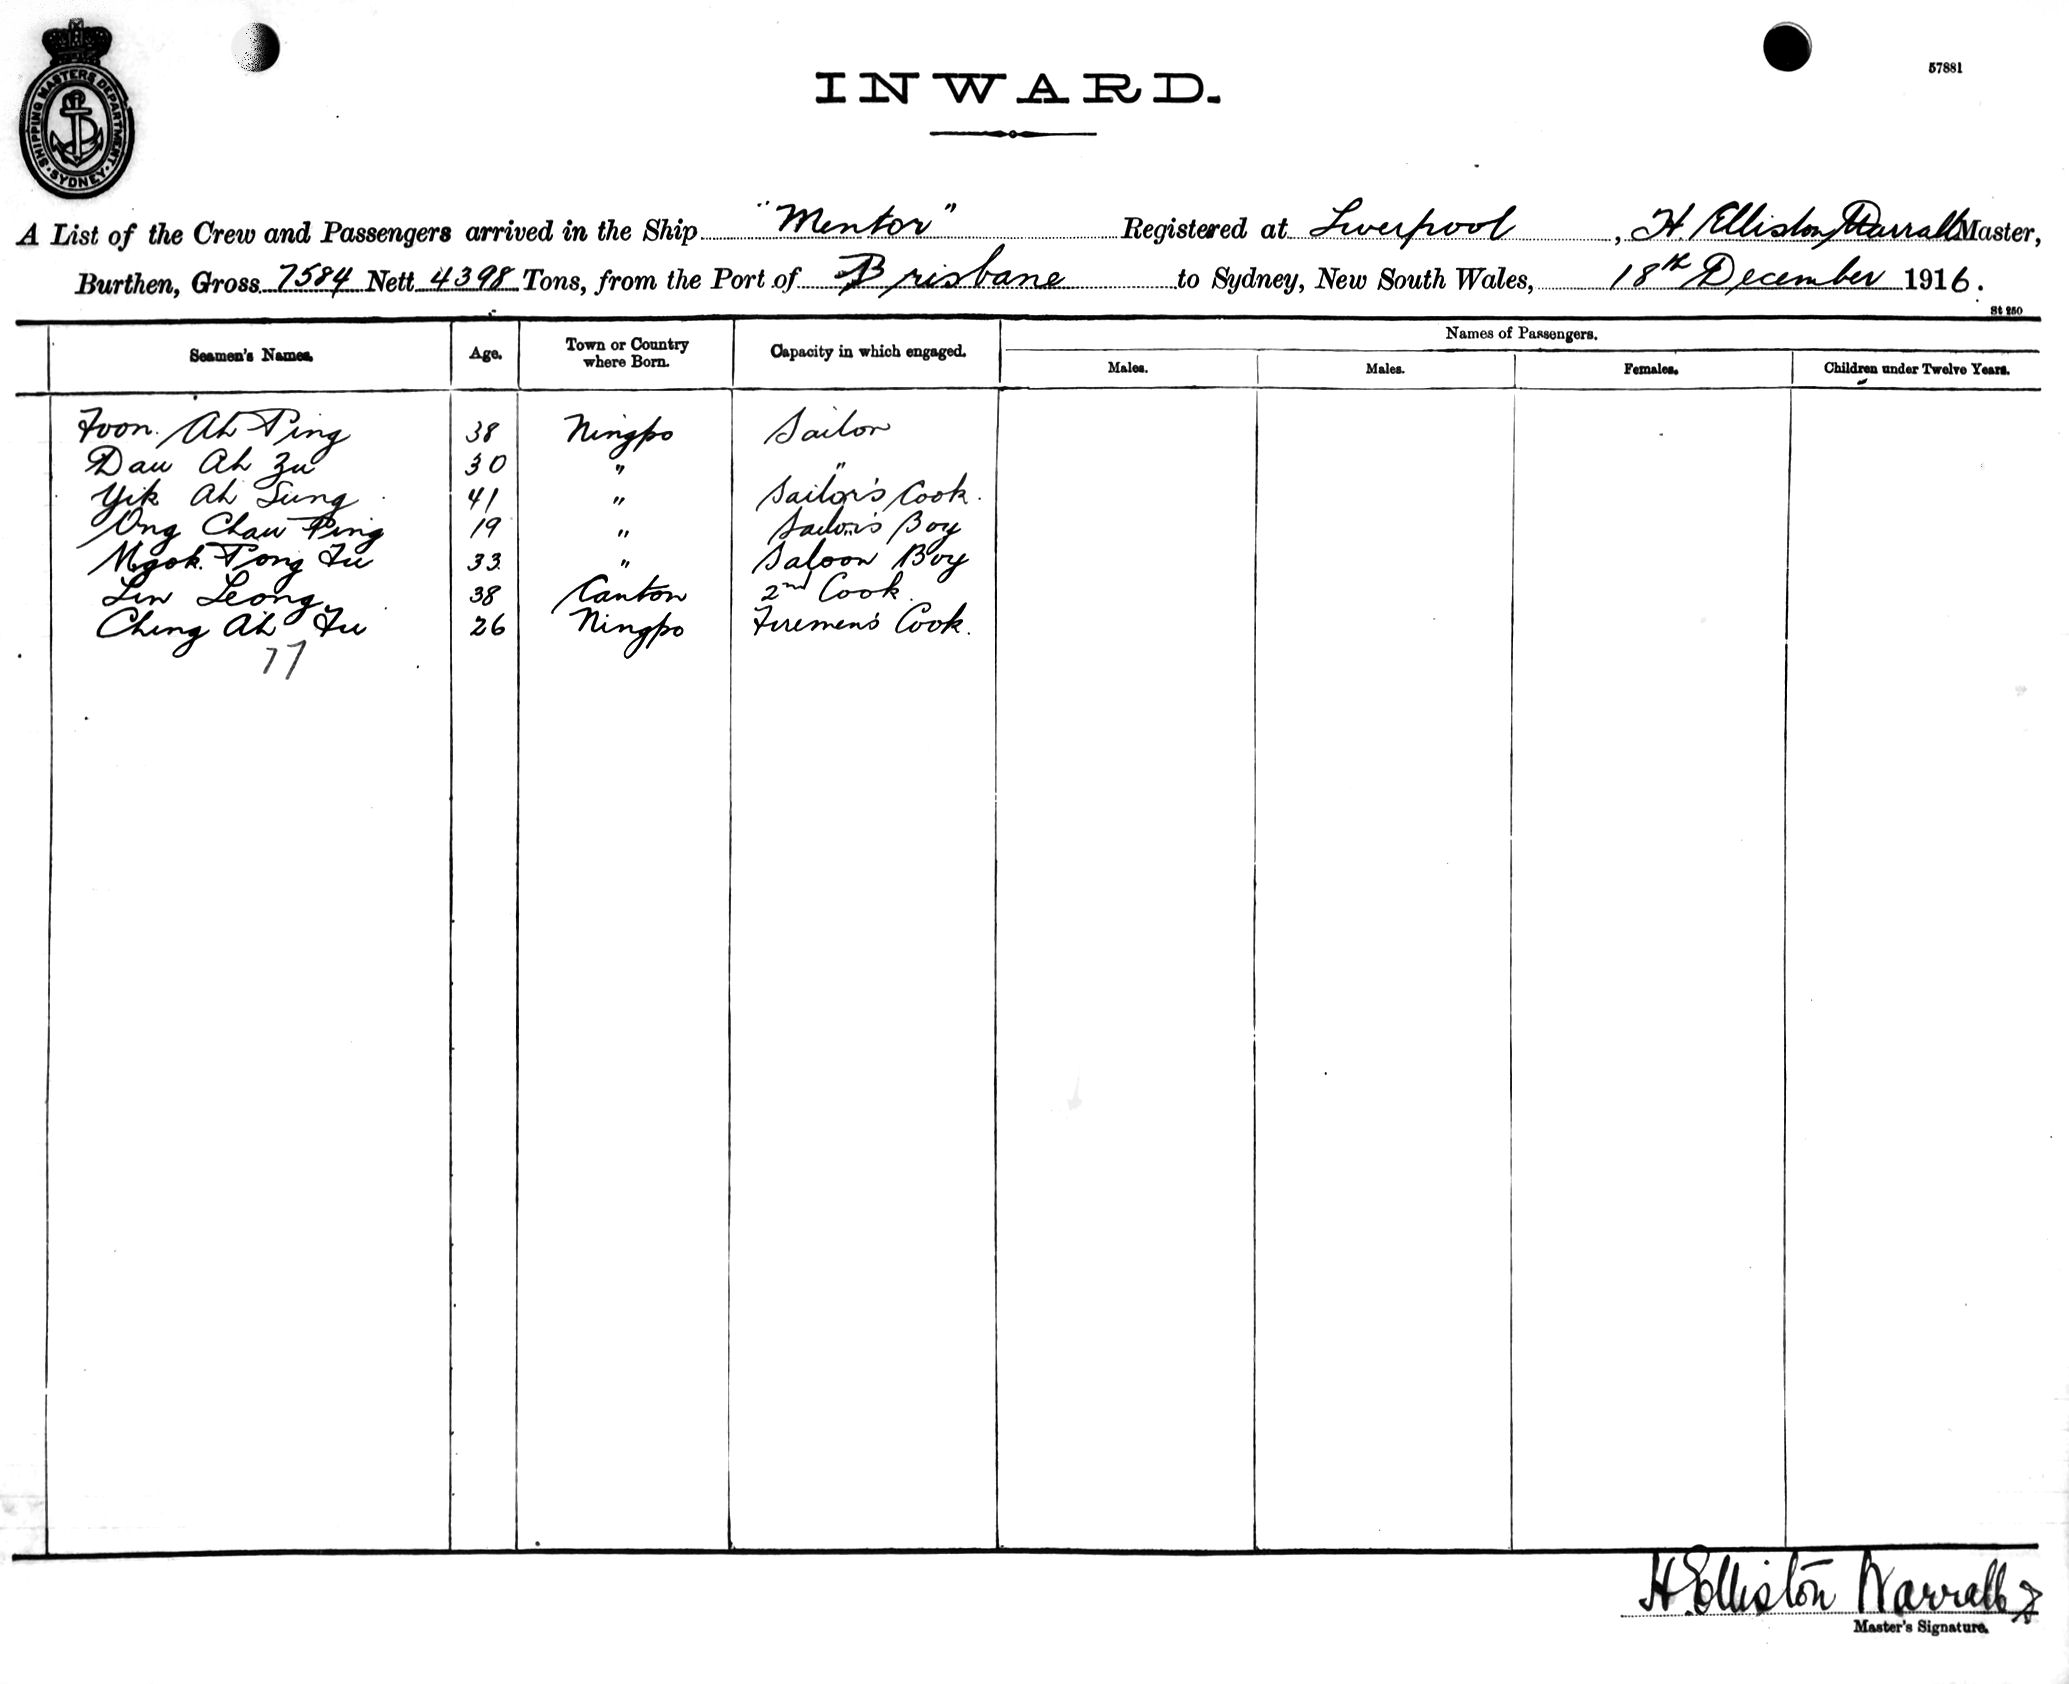 SHIPPING MASTERS DEPARTMENT
SYDNEY
57881
INWARD.
A List of the Crew and Passengers arrived in the Ship "Mentor" Registered at Liverpool, H. Elliston Warrall Master,
Burthen, Gross 7584 Nett 4398 Tons, from the Port of Brisbane to Sydney, New South Wales, 18th December 1916.
St 250
Seamen's Names. Age. Town or Country where Born. Capacity in which engaged. Names of Passengers.
Males. Males. Females. Children under Twelve Years.
Foon Ah Ping 38 Ningpo Sailor
Dau Ah Zu 30 " "
Yik Ah Sung 41 " Sailor's Cook.
Ong Chau Ping 19 " Sailor's Boy
Mgok Tong Fu 33 " Saloon Boy
Lin Leong 38 Canton 2nd Cook.
Ching Ah Fu 26 Ningpo Firemen's Cook.
77
H. Elliston Warrall
Master's Signature.